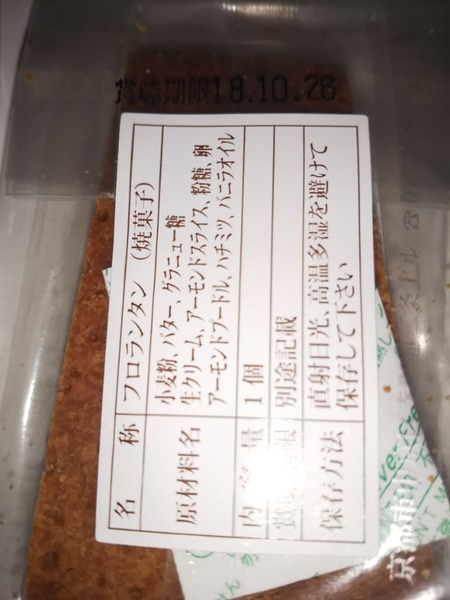 賞味期限18.10.26
名称 フロランタン (焼菓子)
原材料名 小麦粉、バター、グラニュー糖
生クリーム、アーモンドスライス、粉糖、卵
アーモンドプードル、ハチミツ、バニラオイル
内容量 1個
賞味期限 別途記載
保存方法 直射日光、高温多湿を避けて
保存して下さい
京都市